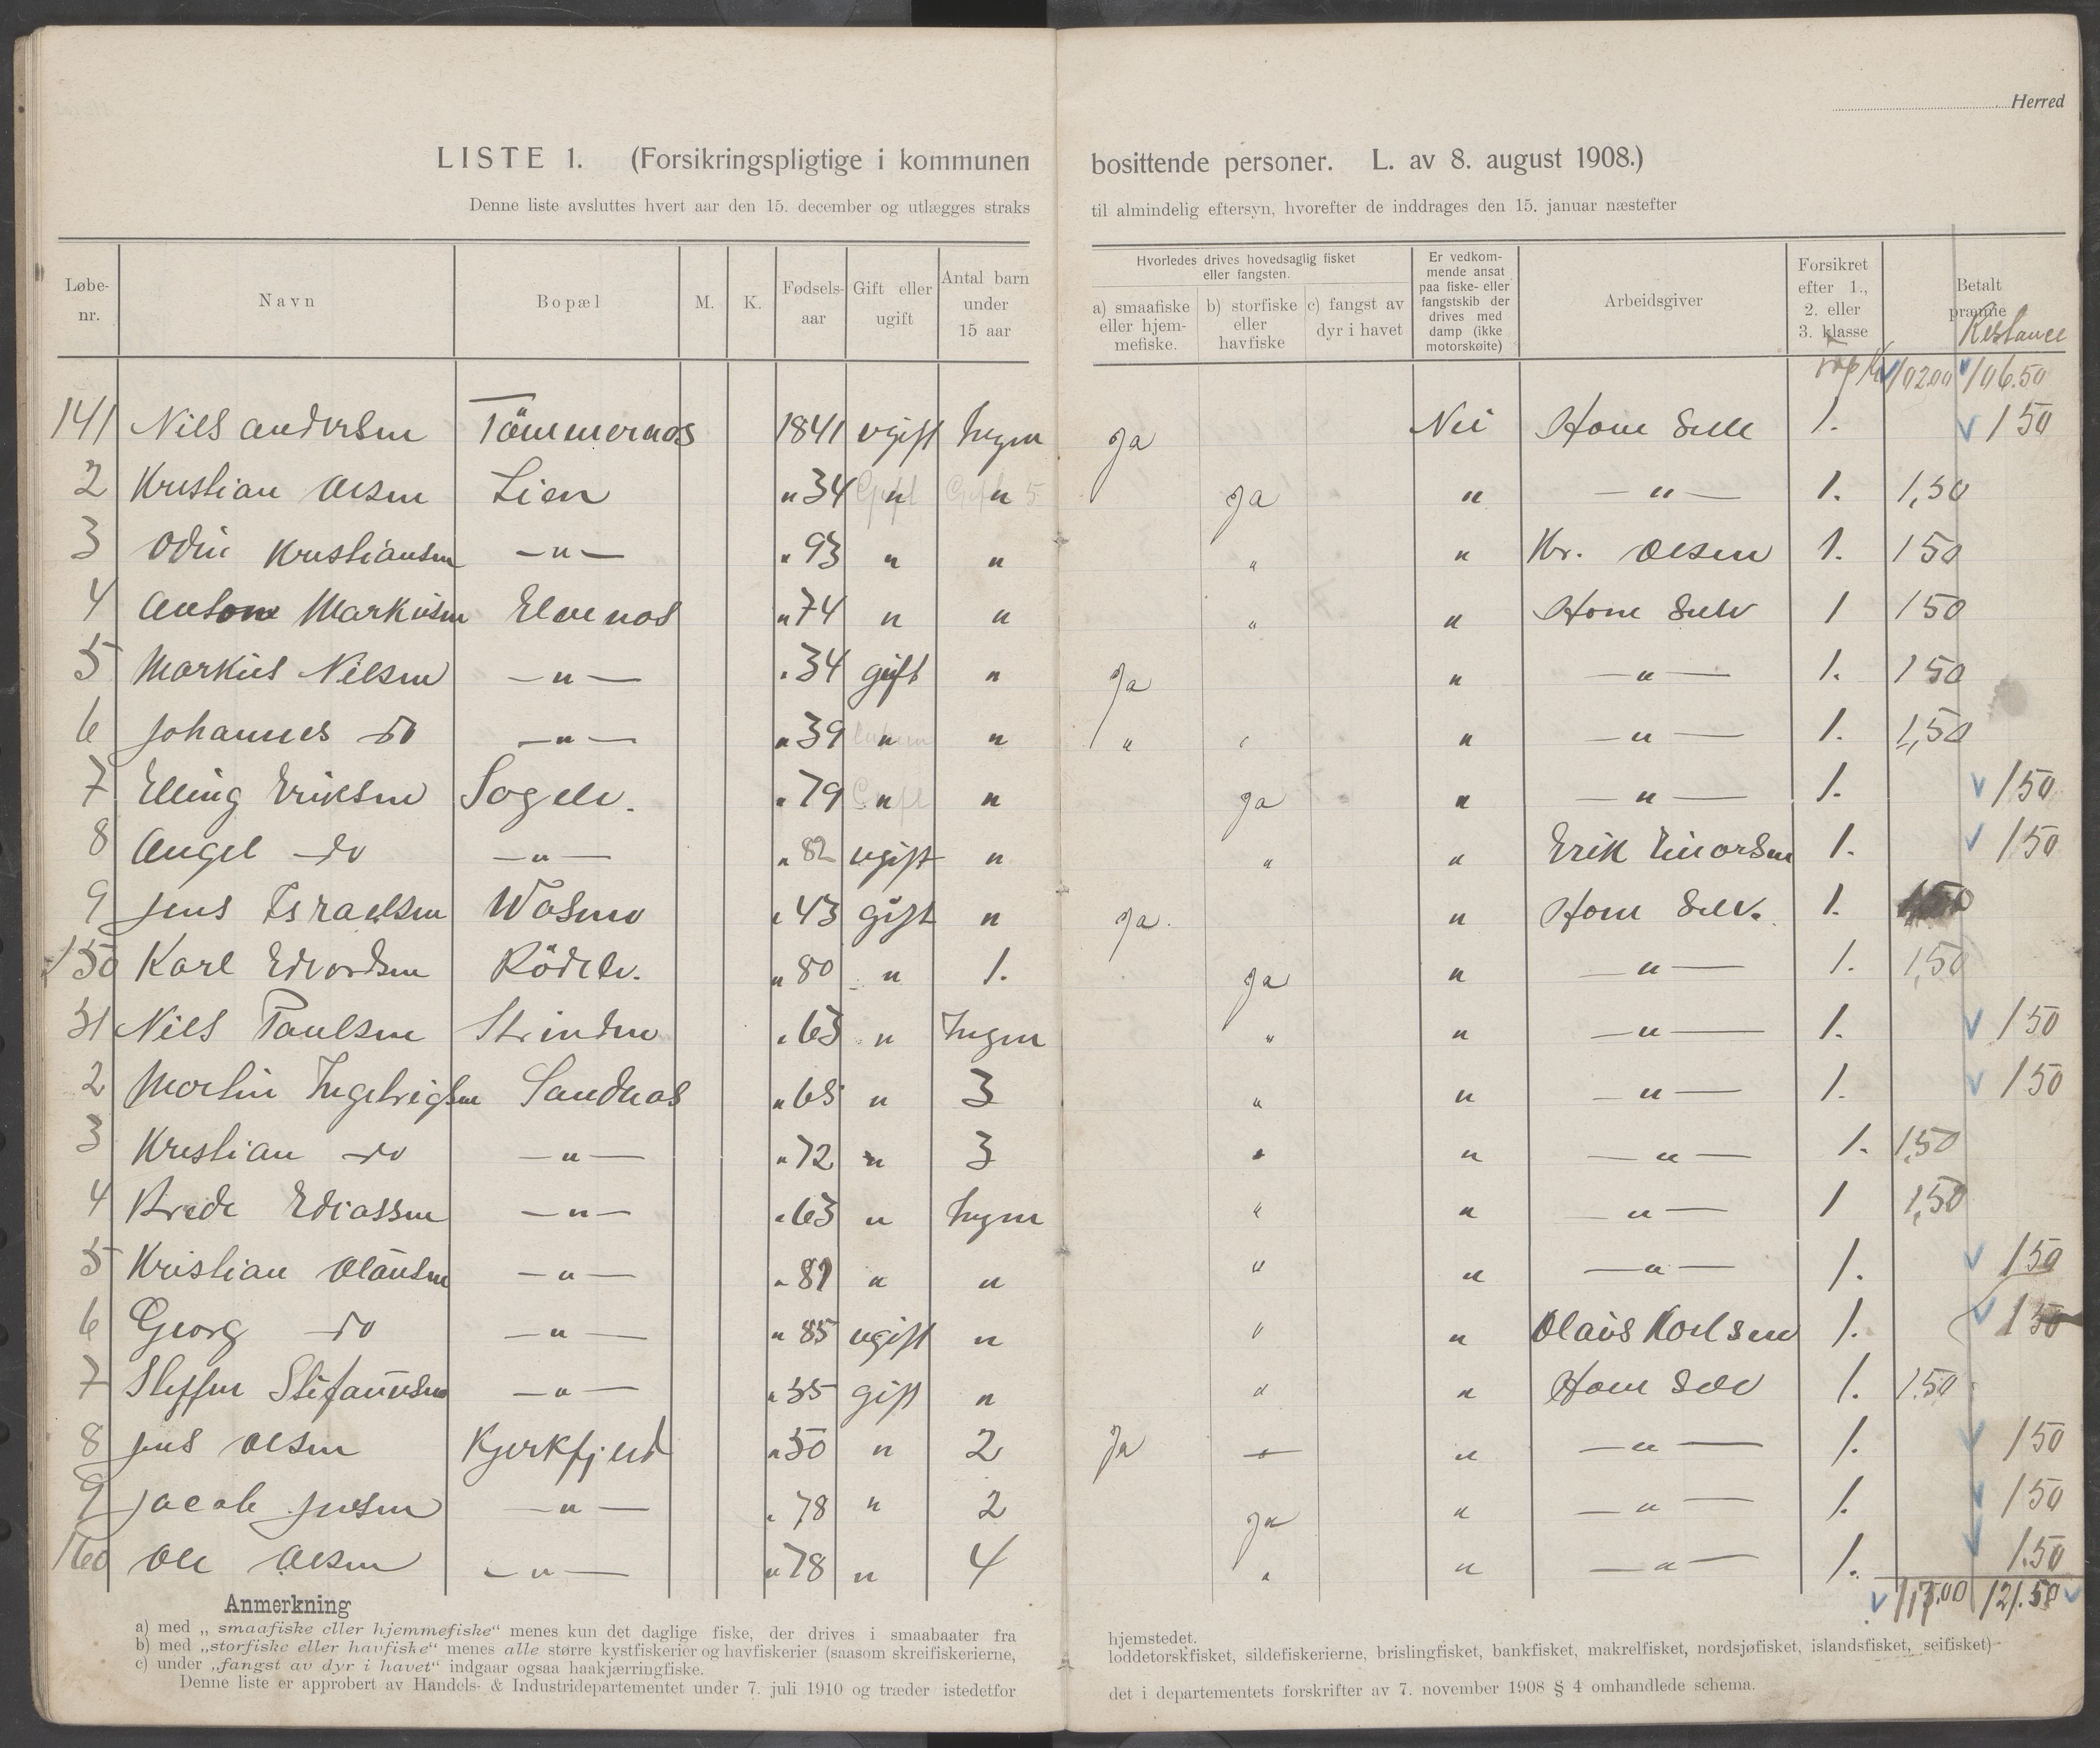 Herred
LISTE 1. (Forsikringspligtige i kommunen bosittende personer. L. av 8. august 1908.)
Denne liste avsluttes hvert aar den 15. december og utlægges straks til almindelig eftersyn, hvorefter de inddrages den 15. januar næstefter
Løbe-nr. Navn Bopæl M. K. Fødsels-aar Gift eller ugift Antal barn under 15 aar Hvorledes drives hovedsaglig fisket eller fangsten. a) smaafiske eller hjem-mefiske. b) storfiske eller havfiske c) fangst av dyr i havet Er vedkom-mende ansat paa fiske- eller fangstskib der drives med damp (ikke motorskøite) Arbeidsgiver Forsikret efter 1., 2. eller 3. klasse Betalt præmie Restance
10200 106.50
141 Nils Andersen Tömmernes 1841 ugift Ingen Ja Nei Ham Selv 1. 150
2 Kristian Olsen Lien " 34 " " Ja " — " — 1. 1,50
3 Odin Kristiansen — " — " 93 " " " " Kr. Olsen 1. 150
4 Anton Markusen Elvenes " 74 " " " " Ham Selv 1 150
5 Markus Nilsen — " — " 34 gift " Ja " — " — 1. 150
6 Johannes do — " — " 39 " " " " — " — 1. 1,50
7 Elling Eriksen Sagelv. " 79 " " Ja " — " — 1. 150
8 Angel do — " — " 82 ugift " " " Erik Einorsen 1. 150
9 Jens Israelsen Wasmo " 43 gift " Ja. " Ham Selv. 1. 150
150 Karl Edvardsen Rödelv. " 80 " 1. Ja " — " — 1. 1,50
51 Nils Paulsen Strinden " 63 " Ingen " " — " — 1. 150
2 Morten Ingebrigtsen Sandnes " 68 " 3 " " — " — 1. 150
3 Kristian do — " — " 72 " 3 " " — " — 1. 1,50
4 Brede Ediassen — " — " 63 " Ingen " " — " — 1 1,50
5 Kristian Olausen — " — " 81 " " " " — " — 1. 150
6 Georg do — " — " 85 ugift " " " Olaus Karlsen 1. 150
7 Steffen Stefanusen — " — " 35 gift " " " Ham Selv 1. 1.50
8 Jens Olsen Kjerkfjerd " 50 " 2 Ja " " — " — 1. 150
9 Jacob Jensen — " — " 78 " 2 Ja " — " — 1. 150
160 Ole Olsen — " — " 78 " 4 " " — " — 1. 1.50
117.00 121.50
Anmerkning
a) med „smaafiske eller hjemmefiske“ menes kun det daglige fiske, der drives i smaabaater fra hjemstedet.
b) med „storfiske eller havfiske“ menes alle større kystfiskerier og havfiskerier (saasom skreifiskerierne, loddetorskfisket, sildefiskerierne, brislingfisket, bankfisket, makrelfisket, nordsjøfisket, islandsfisket, seifisket)
c) under „fangst av dyr i havet“ indgaar ogsaa haakjærringfiske.
Denne liste er approbert av Handels- & Industridepartementet under 7. juli 1910 og træder istedetfor det i departementets forskrifter av 7. november 1908 § 4 omhandlede schema.